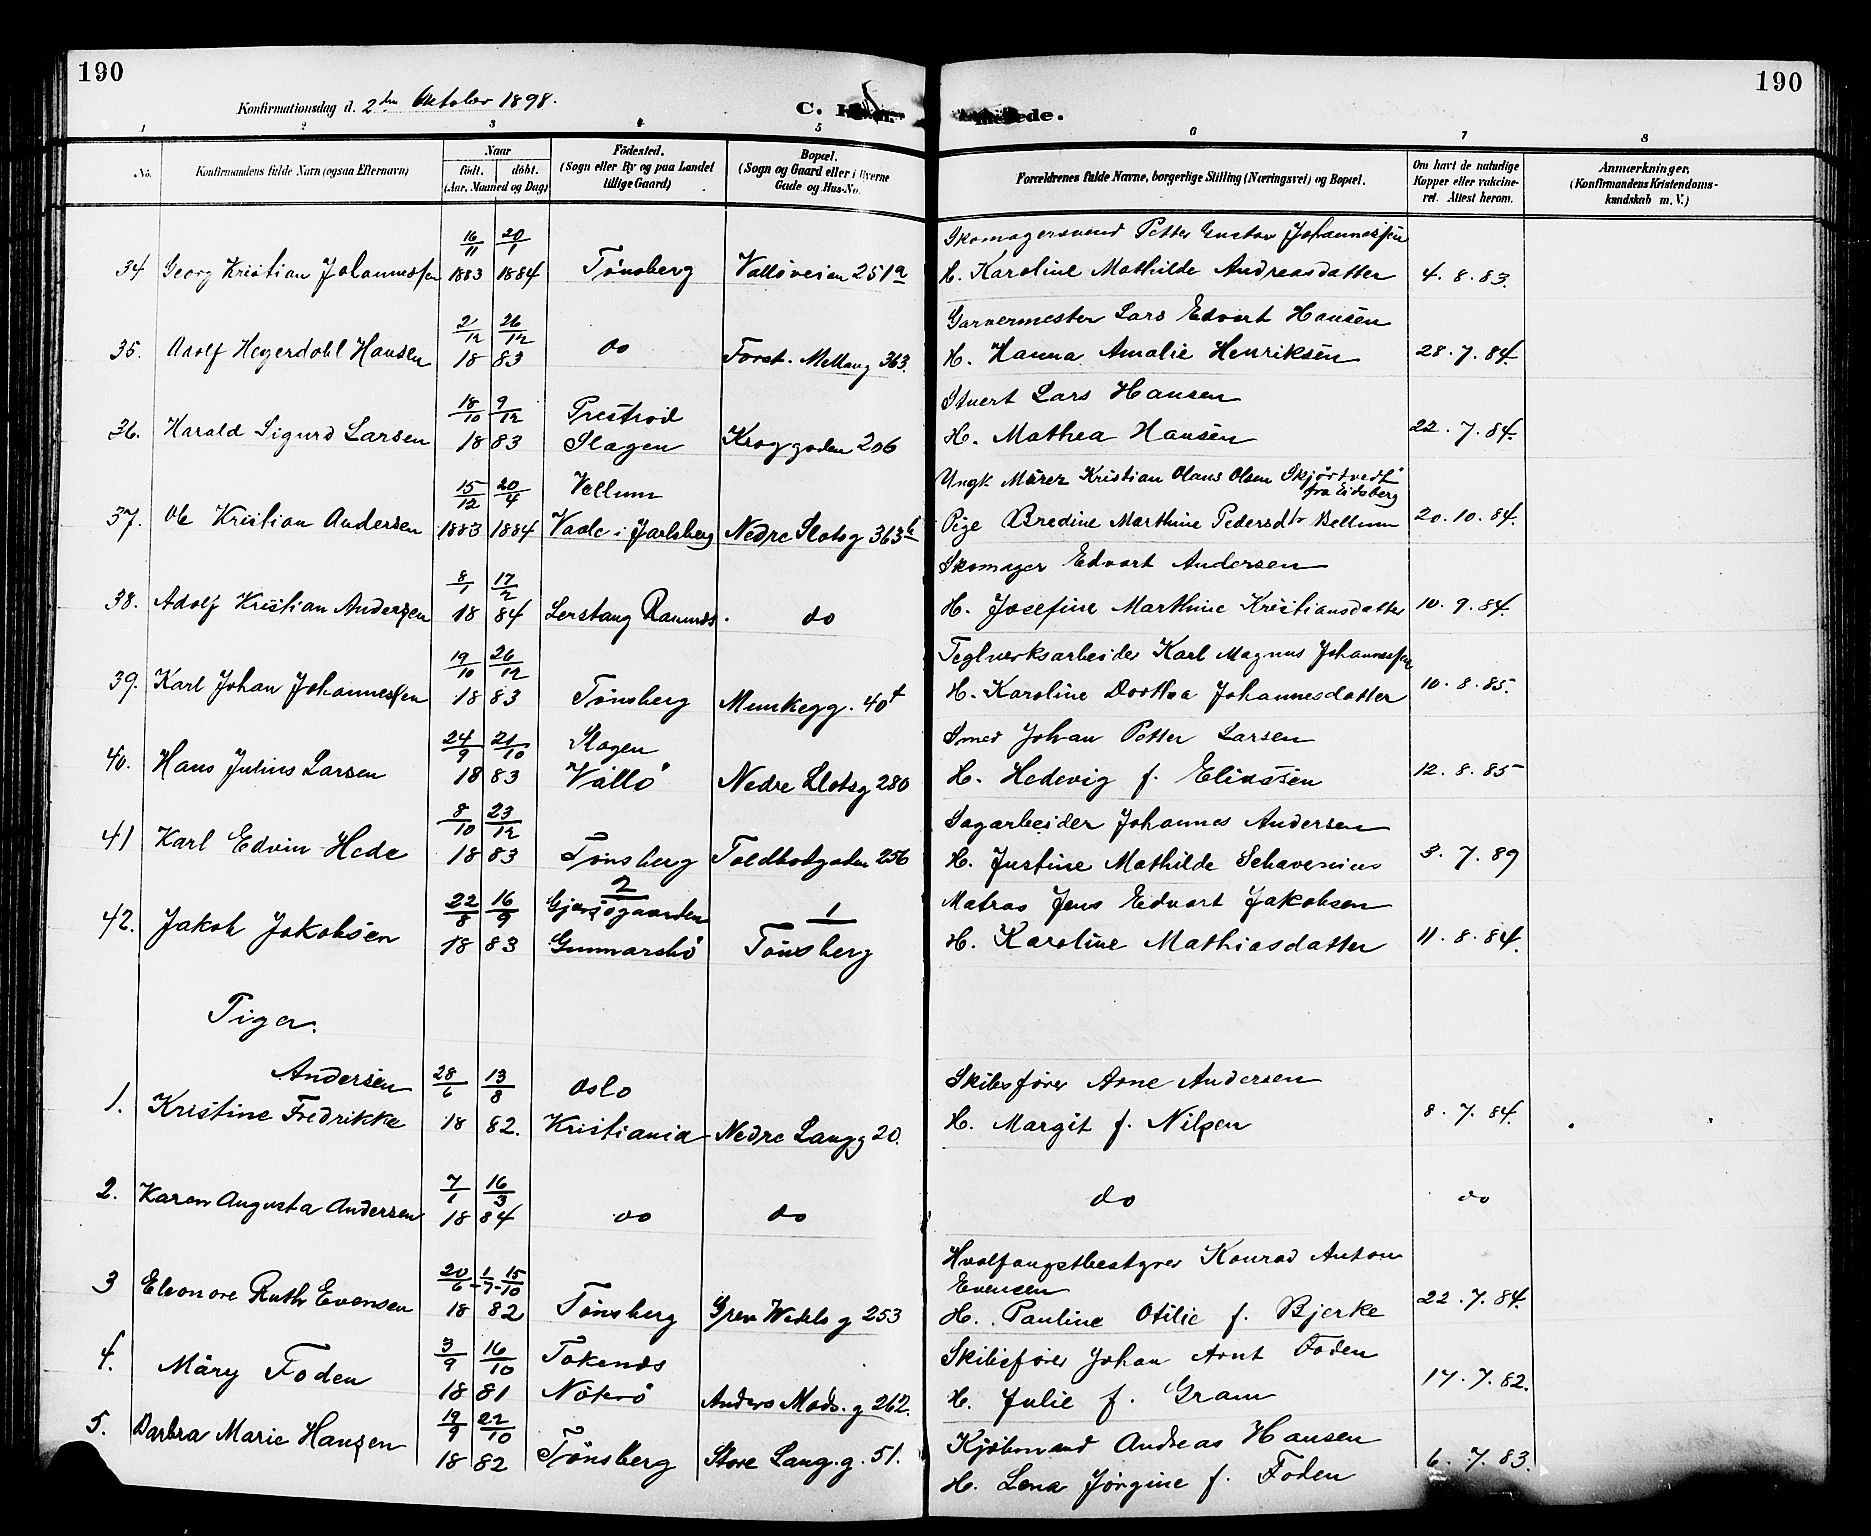 190
190
Konfirmationsdag d. 2den Oktober 1898.
C.
1 2 3 4 5 6 7 8
No.
Konfirmandens fulde Navn (ogsaa Efternavn)
Naar
født. døbt.
(Aar, Maaned og Dag)
Fødested.
(Sogn eller By og paa Landet
tillige Gaard)
Bopæl.
(Sogn og Gaard eller i Byerne
Gade og Hus-No.
Forældrenes fulde Navne, borgerlige Stilling (Næringsvei) og Bopæl.
Om havt de naturlige
Kopper eller vakcine-
ret. Attest herom.
Anmærkninger.
(Konfirmandens Kristendoms-
kundskab m. V.)
16/11 20/1 Skomagersvend Petter Gustav Johannessen
34 Georg Kristian Johannessen 1883 1884 Tønsberg Valløveien 251a H. Karoline Mathilde Andreasdatter 4.8.83.
2/12 26/12 Garvermester Lars Edvart Hansen
35. Adolf Hegerdahl Hansen 18 83 do Forst. Mellang 363. H. Hanna Amalie Henriksen 28.7.84.
18/10 9/12 Prestrød Stuert Lars Hansen
36. Harald Sigurd Larsen 18 83 Slagen Kroggaden 206 H. Mathea Hansen 22.7.84.
15/12 20/4 Vellum Ungk Murer Kristian Olaus Olsen Skjørtvedt
fra Eidsberg
37. Ole Kristian Andersen 1883 1884 Vaale i Jarlsberg Nedre Slotsg 363b Pige Bredine Marthine Pedersdtr Bellum 20.10.84.
8/1 17/2 Skomager Edvart Andersen
38. Adolf Kristian Andersen 18 84 Lerstang Ramnes. do H. Josefine Marthine Kristiansdatter 10.9.84.
19/10 26/12 Teglverksarbeider Karl Magnus Johannessen
39. Karl Johan Johannessen 18 83 Tønsberg Munkegg. 40t H. Karoline Dorthea Johannesdatter 10.8.85.
24/9 21/10 Slagen Smed Johan Petter Larsen
40. Hans Julius Larsen 18 83 Vallø Nedre Slotsg 280 H. Hedevig f. Eliassen 12.8.85
8/10 23/12 Sagarbeider Johannes Andersen
41 Karl Edvin Hede 18 83 Tønsberg Toldbodgaden 256 H. Justine Mathilde Schavenius 3.7.89
22/8 16/9 2 1 Matros Jens Edvart Jakobsen
42. Jakob Jakobsen 18 83 Gunnarsbø Tønsberg H. Karoline Mathiasdatter 11.8.84.
Piger.
Andersen 28/6 13/8 Oslo Skibsfører Arne Andersen
1. Kristine Fredrikke 18 82. Kristiania Nedre Langg 20. H. Margit f. Nilsen 8.7.84.
7/1 16/3 do do
2. Karen Augusta Andersen 18 84 do do
20/6 1/7-15/10 Hvalfangstbestyrer Konrad Anton
Evensen
3 Eleonore Ruth Evensen 18 82 Tønsberg Grev Wedels g 253 H. Pauline Otilie f. Bjerke 22.7.84.
3/9 16/10 Tokenes Skibsfører Johan Arnt Foden
4. Mary Foden 18 81 Nøterø Anders Mads.g 262. H. Julie f. Gram 17.7.82.
19/9 22/10 Kjøbmand Andreas Hansen
5. Barbra Marie Hansen 18 82 Tønsberg Store Lang.g. 51. H. Lena Jørgine f. Foden 6.7.83.